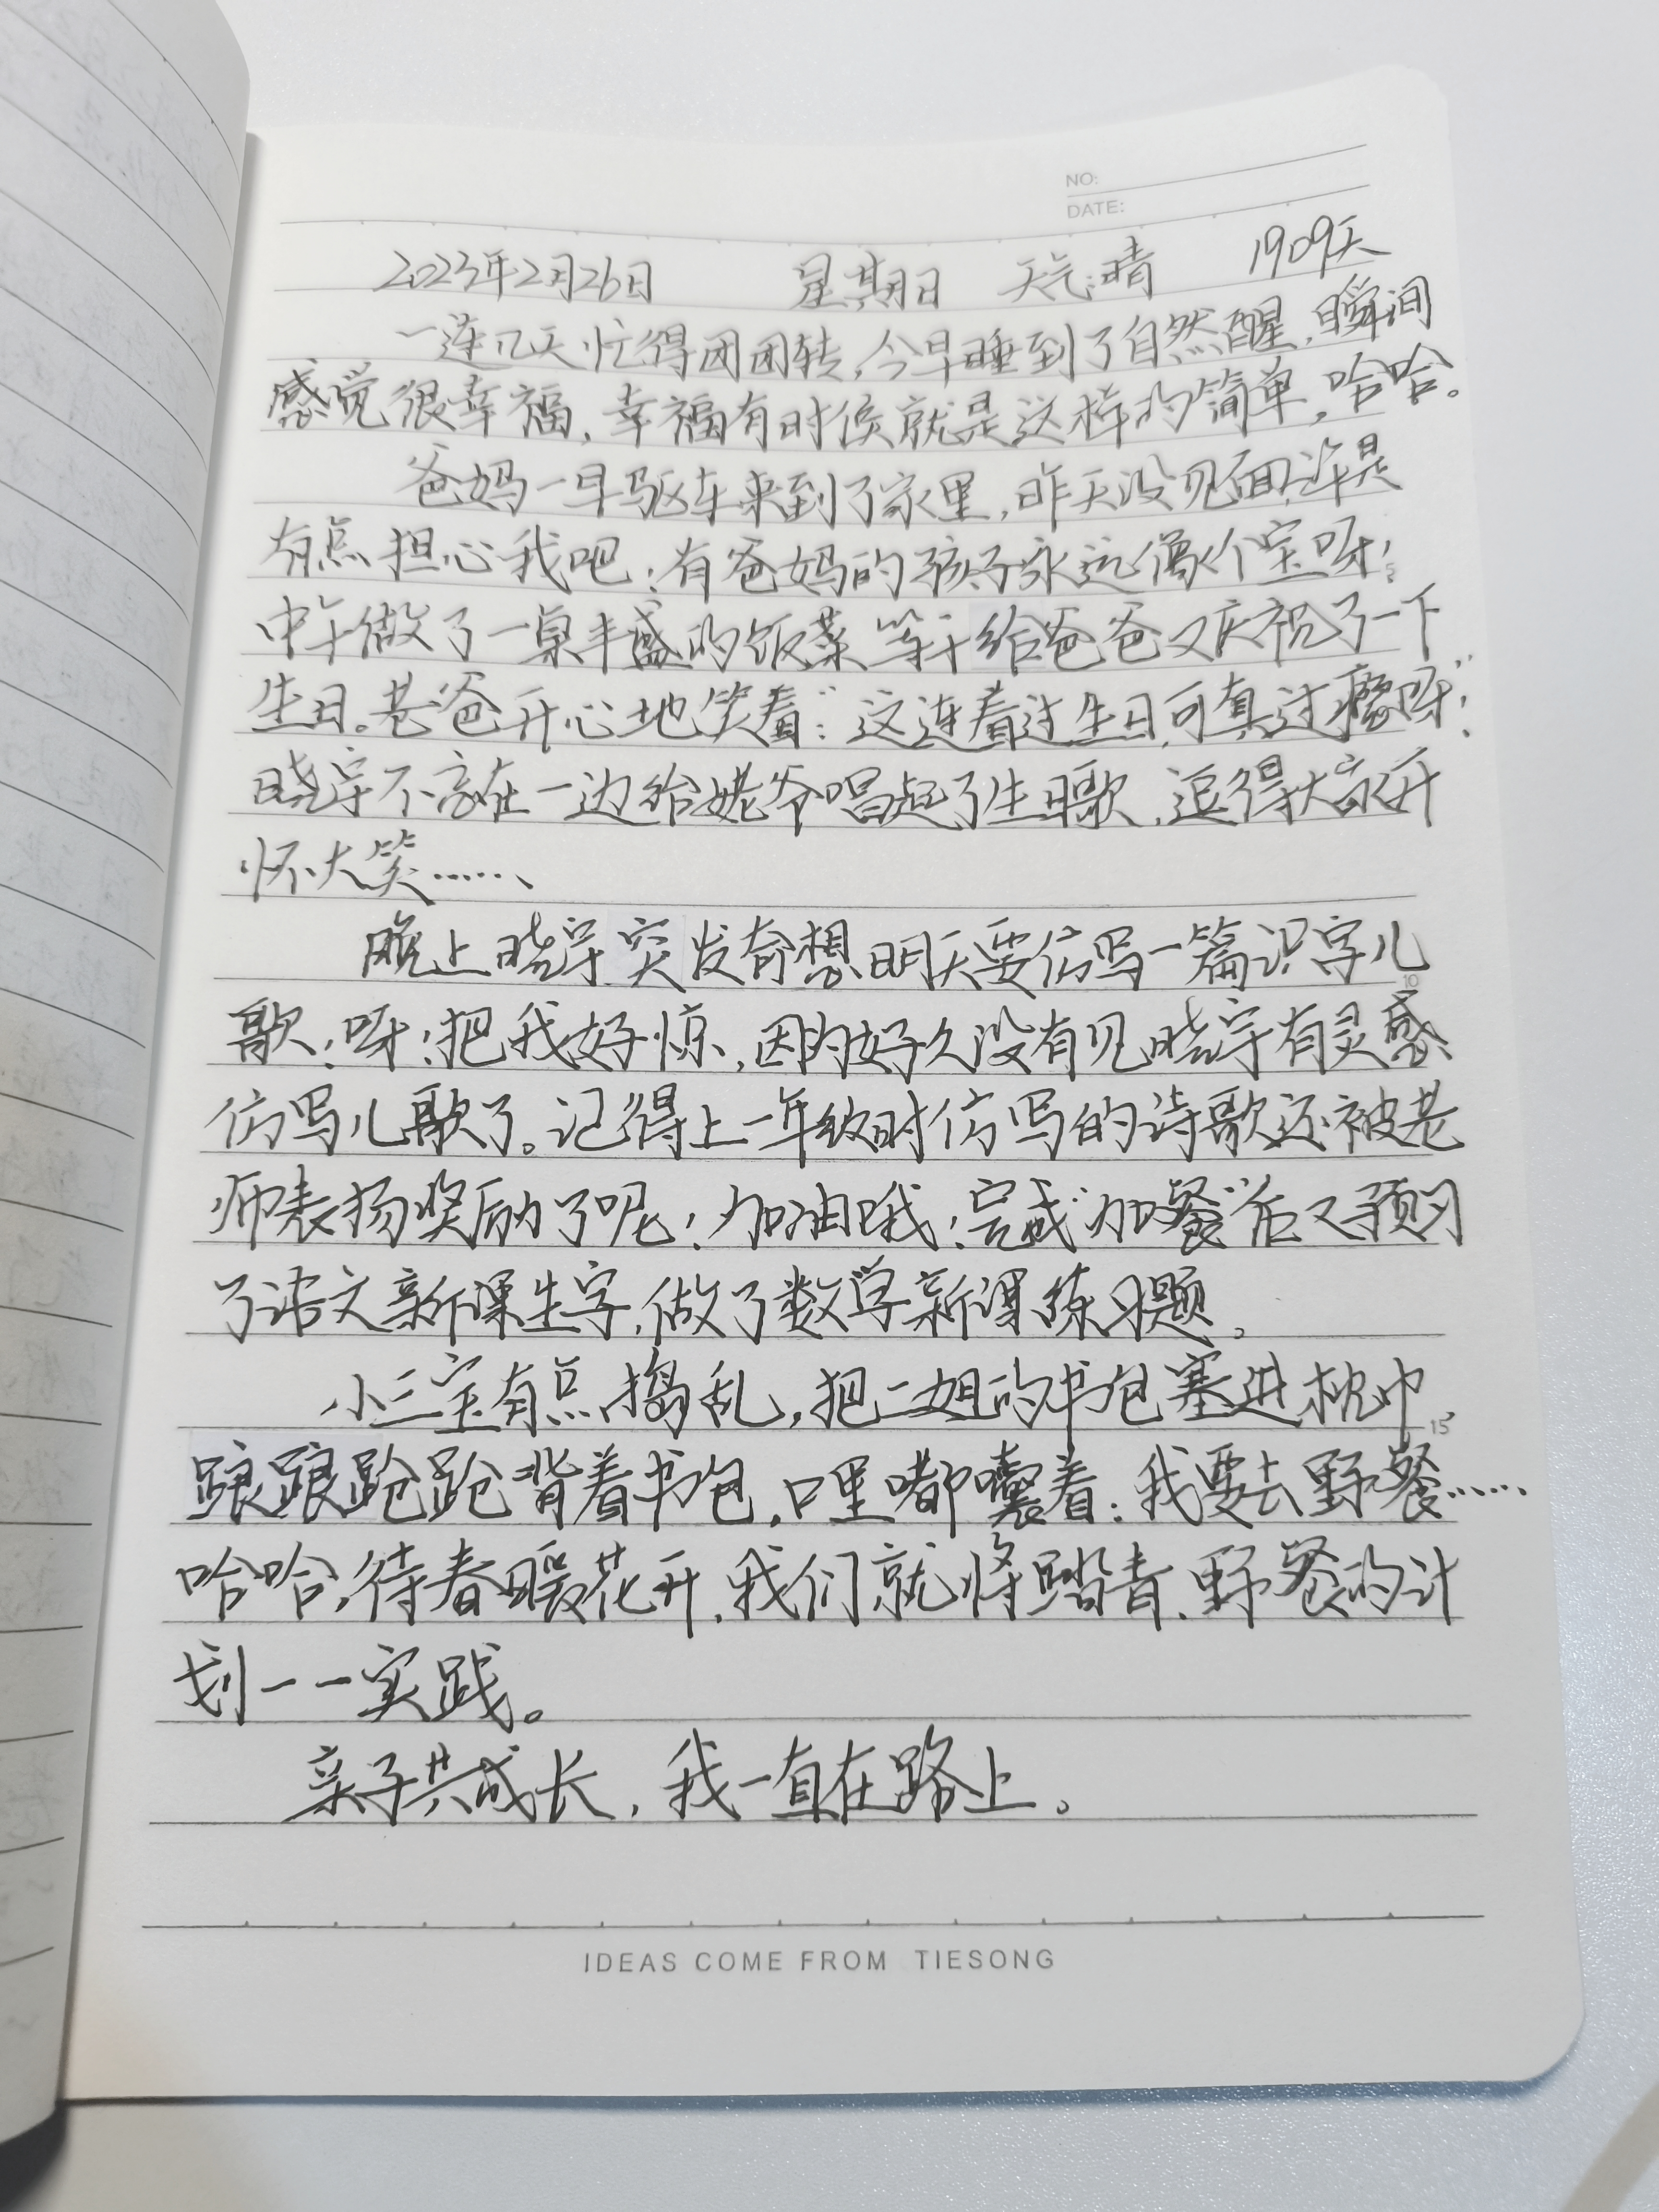 NO:
DATE:
2023年2月26日 星期日 天气:晴 1909天
一连几天忙得团团转,今早睡到了自然醒,瞬间
感觉很幸福,幸福有时候就是这样的简单,哈哈。
爸妈一早驱车来到了家里,昨天没见面,许是
有点担心我吧!有爸妈的孩子永远像个宝呀!
中午做了一桌丰盛的饭菜,等于给爸爸又庆祝了一下
生日。老爸开心地笑着:“这连着过生日,可真过瘾呀!”
晓宇不忘在一边给姥爷唱起了生日歌,逗得大家开
怀大笑……
晚上晓宇突发奇想,明天要仿写一篇识字儿
歌!呀!把我好惊,因为好久没有见晓宇有灵感
仿写儿歌了。记得上一年级时仿写的诗歌还被老
师表扬奖励了呢!加油哦!完成“加餐”后又预习
了语文新课生字,做了数学新课练习题。
小三宝有点捣乱,把二姐的书包塞进枕巾,
踉踉跄跄背着书包,口里嘟囔着:我要去野餐……
哈哈,待春暖花开,我们就将踏青、野餐的计
划一一实践。
亲子共成长,我一直在路上。
10
15
IDEAS COME FROM TIESONG